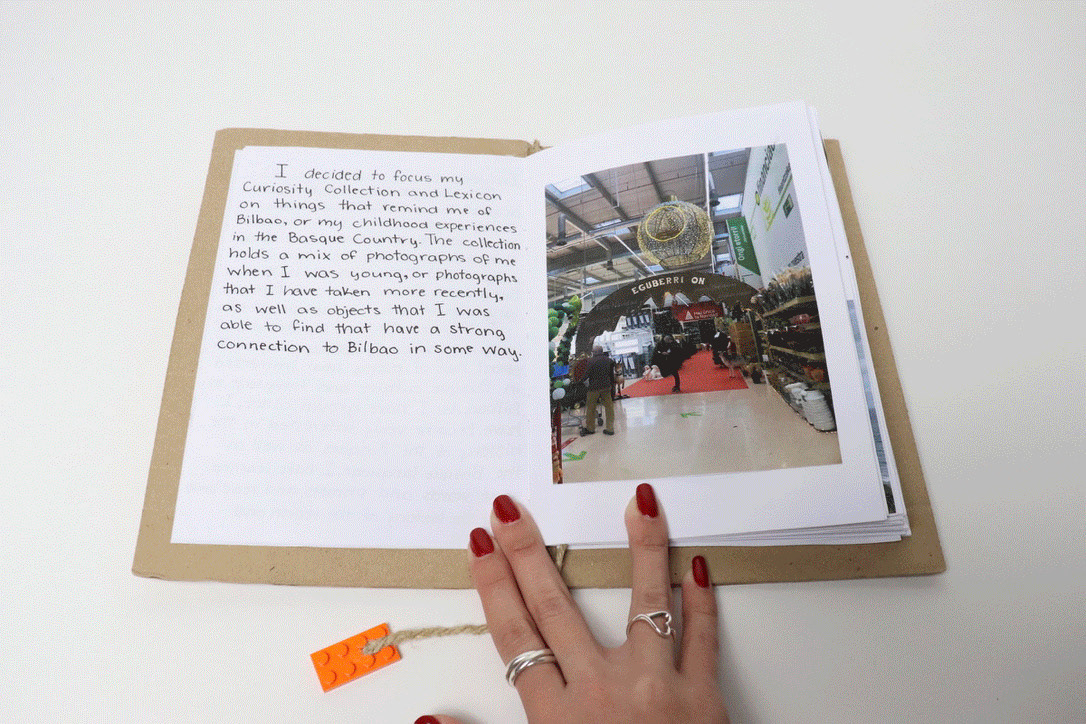 I decided to focus my
Curiosity Collection and Lexicon
on things that remind me of
Bilbao, or my childhood experiences
in the Basque Country. The collection
holds a mix of photographs of me
when I was young, or photographs
that I have taken more recently,
as well as objects that I was
able to find that have a strong
connection to Bilbao in some way.
EGUBERRI ON
Ongi etorri!